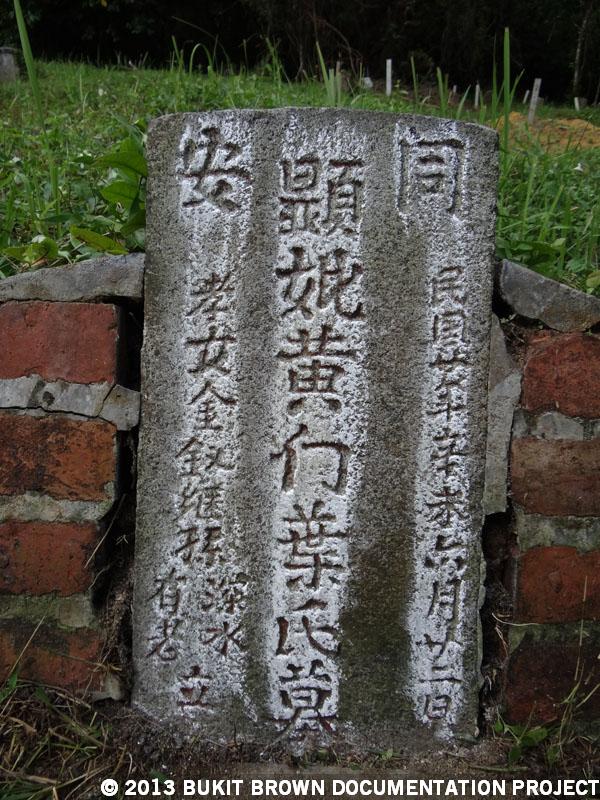 同安
民囯廿年辛未六月廿二日
顯妣黄门葉氏墓
孝女金釵继孫深水
有老
立
© 2013 BUKIT BROWN DOCUMENTATION PROJECT